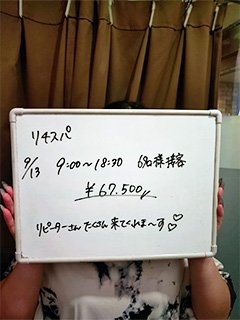 リキスパ
9/13 9:00〜18:30 6名様接客
¥67.500
リピーターさんたくさん来てくれま〜す♡♡